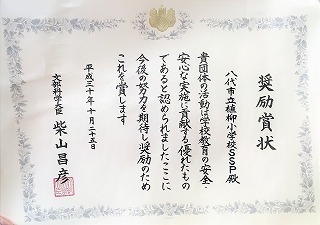 奨励賞状
八代市立植柳小学校SSP殿
貴団体の活動は学校教育の安全・
安心な実施に貢献する優れたもの
であると認められましたここに
今後の努力を期待し奨励のため
これを賞します
平成三十年十月二十五日
文部科学大臣 柴山昌彦